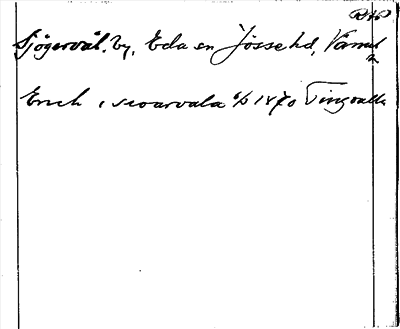 Sjögervål. by, Eda sn Jösse hd, Värml
Erich i seoarvala 6/5 1870 Tingvalla